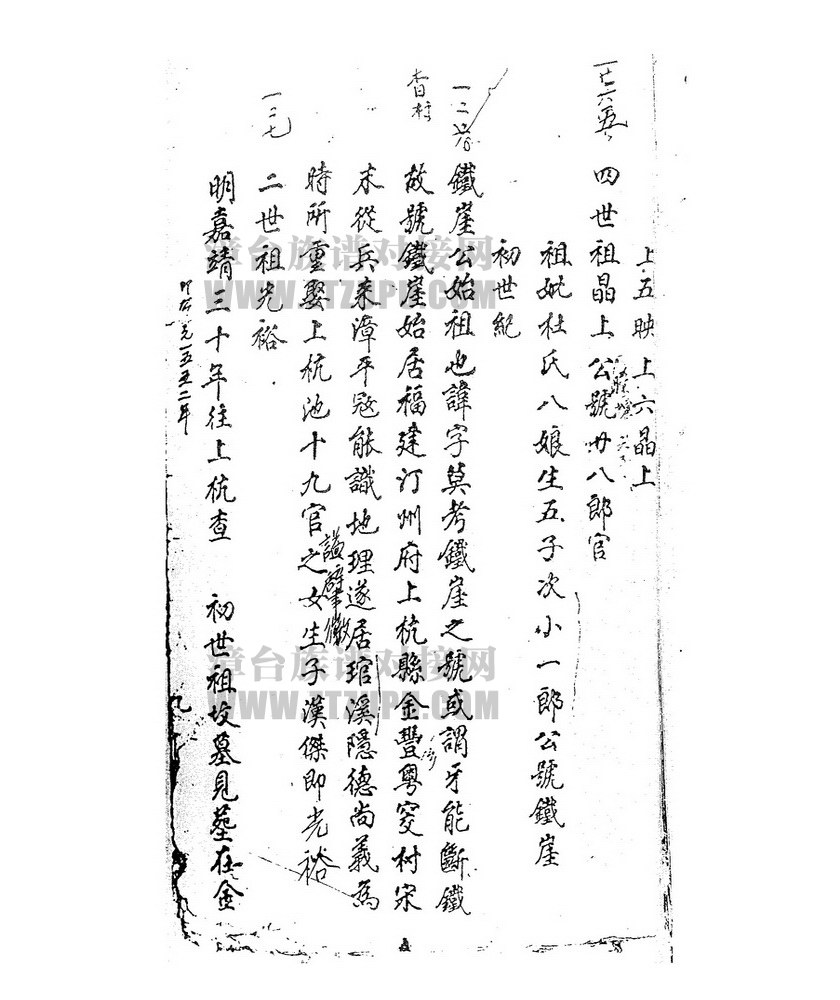 上五映上六晶上
四世祖晶上公號廿八郎官
祖妣杜氏八娘生五子次小一郎公號鐵崖
初世紀
鐵崖公始祖也諱字莫考鐵崖之號或謂牙能斷鐵
故號鐵崖始居福建汀州府上杭縣金豐粤窔村宋
末從兵來漳平寇能識地理遂居琯溪隱德尚義為
時所重娶上杭池十九官之女生子漢傑即光裕
謚肇徽
二世祖光裕
明嘉靖三十年往上杭查 初世祖坟墓見墓在金
即公元一五五二年
一二七
章台族谱对接网
WWW.ITZJP
章台族谱对接网
WWW.ITZJP